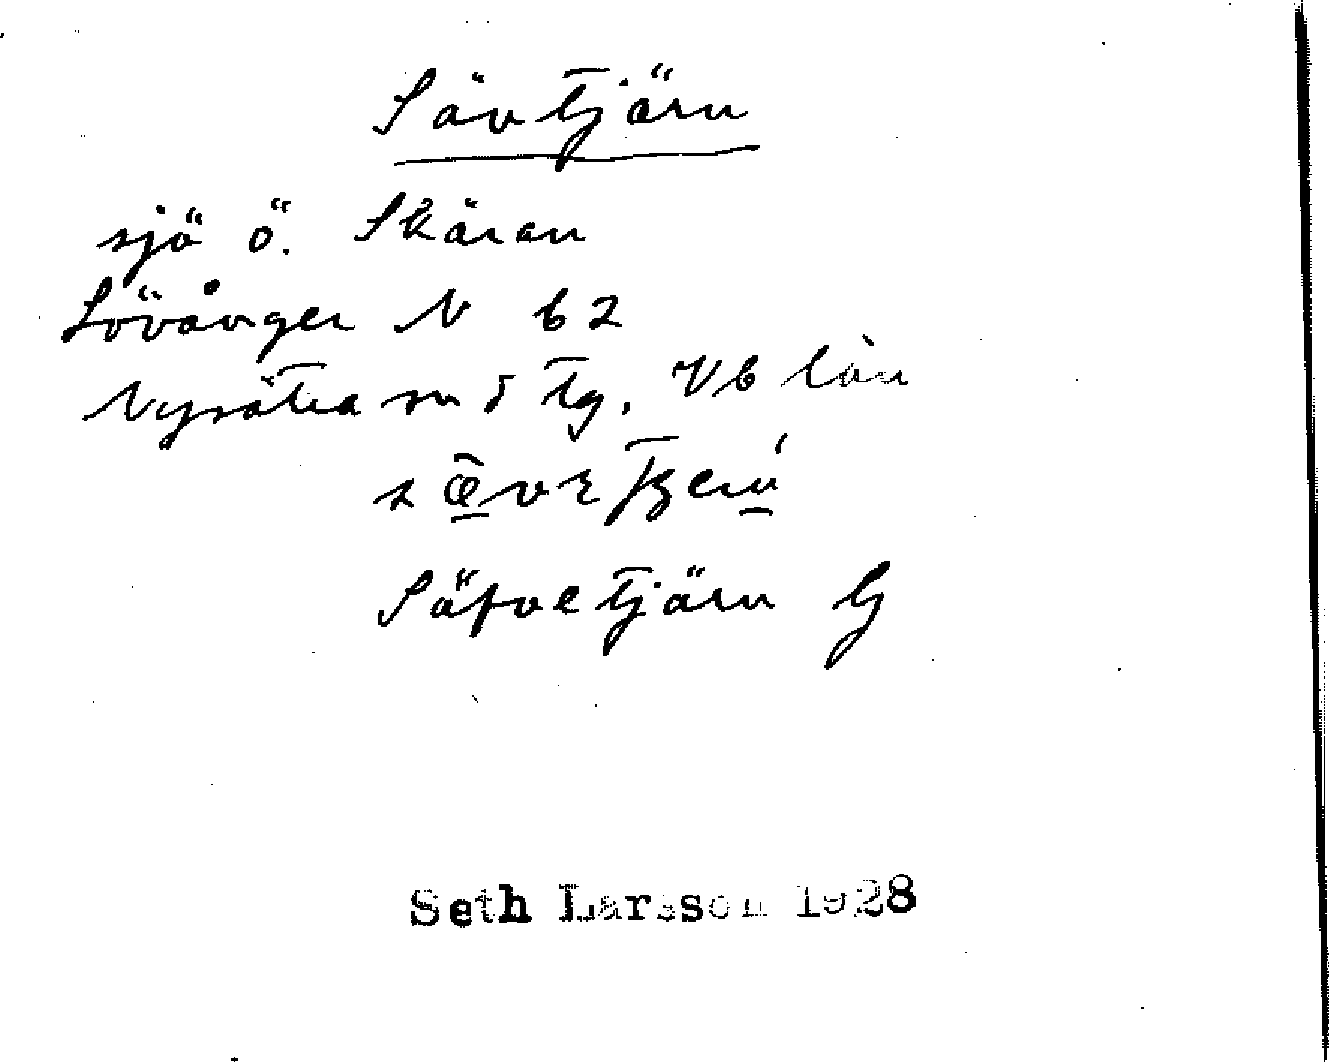 Sävtjärn
sjö ö. Skäran
Lövånger N b 2
Nysätra sn o tg. Vb län
Säfvetjärn G
Seth Larsson 1928